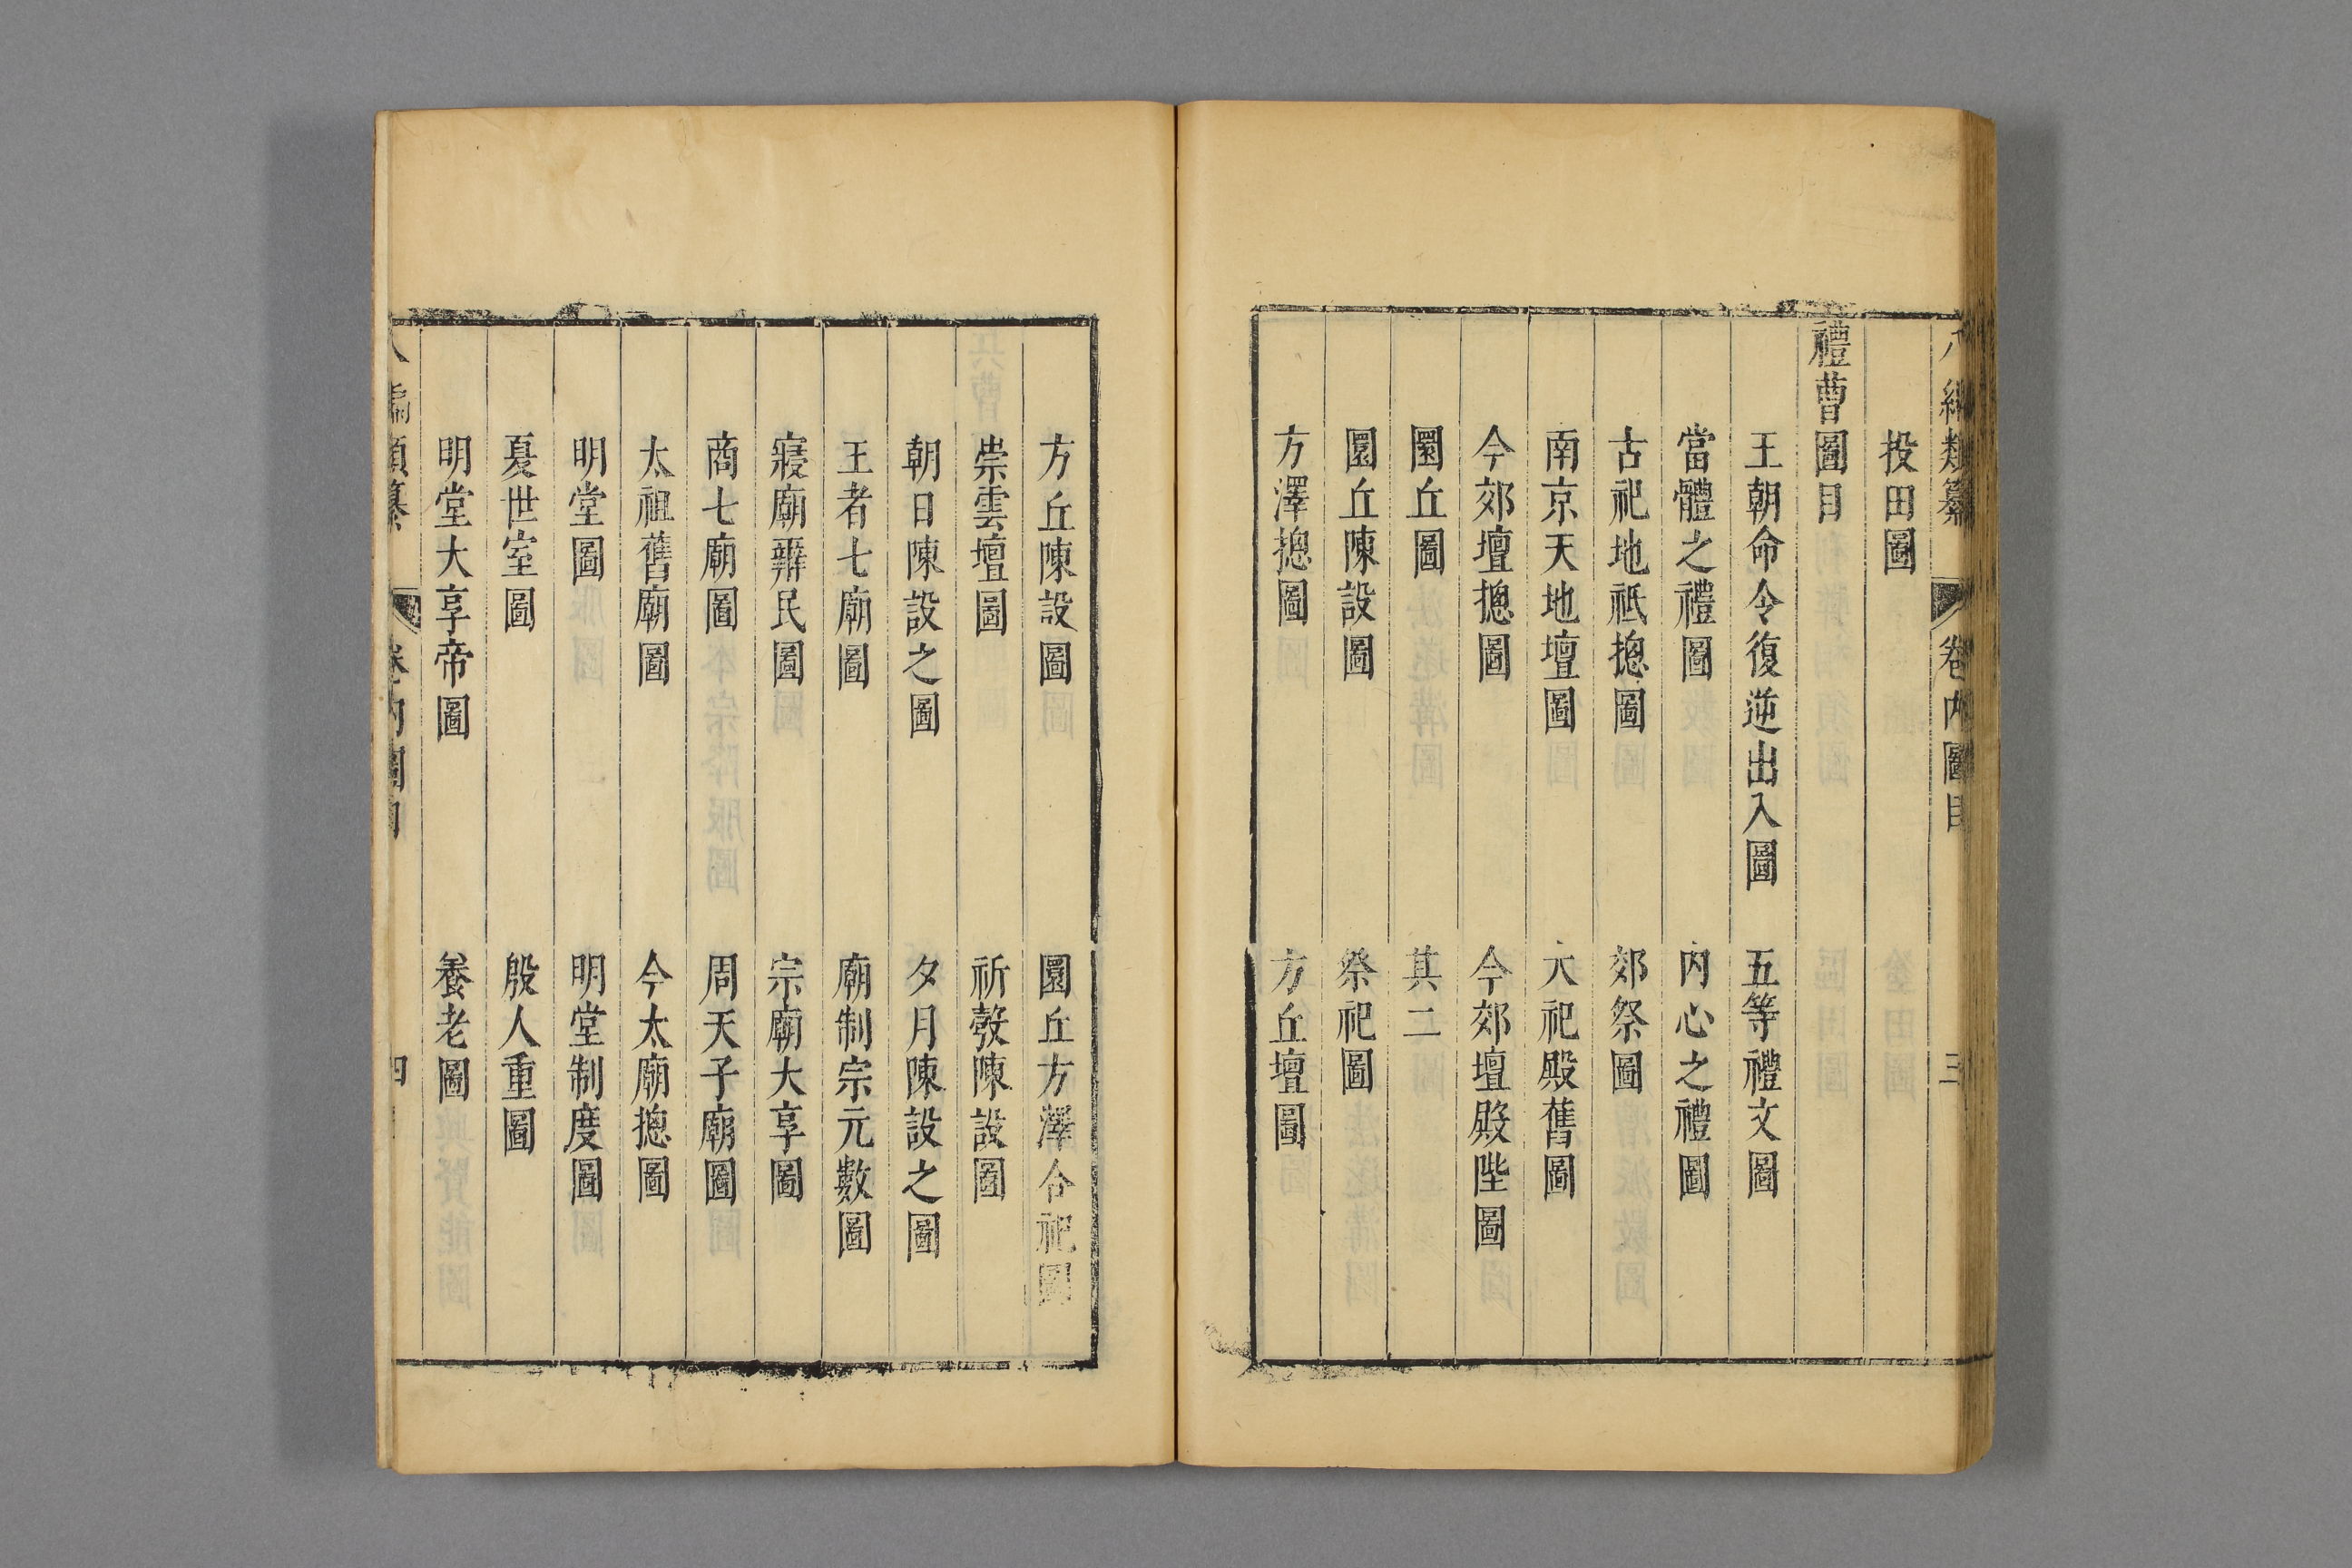 八編類纂 卷内圖目 三
投田圖
禮曹圖目
王朝命令復逆出入圖 五等禮文圖
當體之禮圖 内心之禮圖
古祀地祇摠圖 郊祭圖
南京天地壇圖 大祀殿舊圖
今郊壇摠圖 今郊壇殿陛圖
圜丘圖 其二
圜丘陳設圖 祭祀圖
方澤摠圖 方丘壇圖
方丘陳設圖 圜丘方澤合祀圖
崇雲壇圖 祈穀陳設圖
朝日陳設之圖 夕月陳設之圖
王者七廟圖 廟制宗元數圖
寢廟辨民圖 宗廟大享圖
商七廟圖 周天子廟圖
太祖舊廟圖 今太廟摠圖
明堂圖 明堂制度圖
夏世室圖 殷人重圖
明堂大享帝圖 養老圖
八編類纂 卷内圖目 四